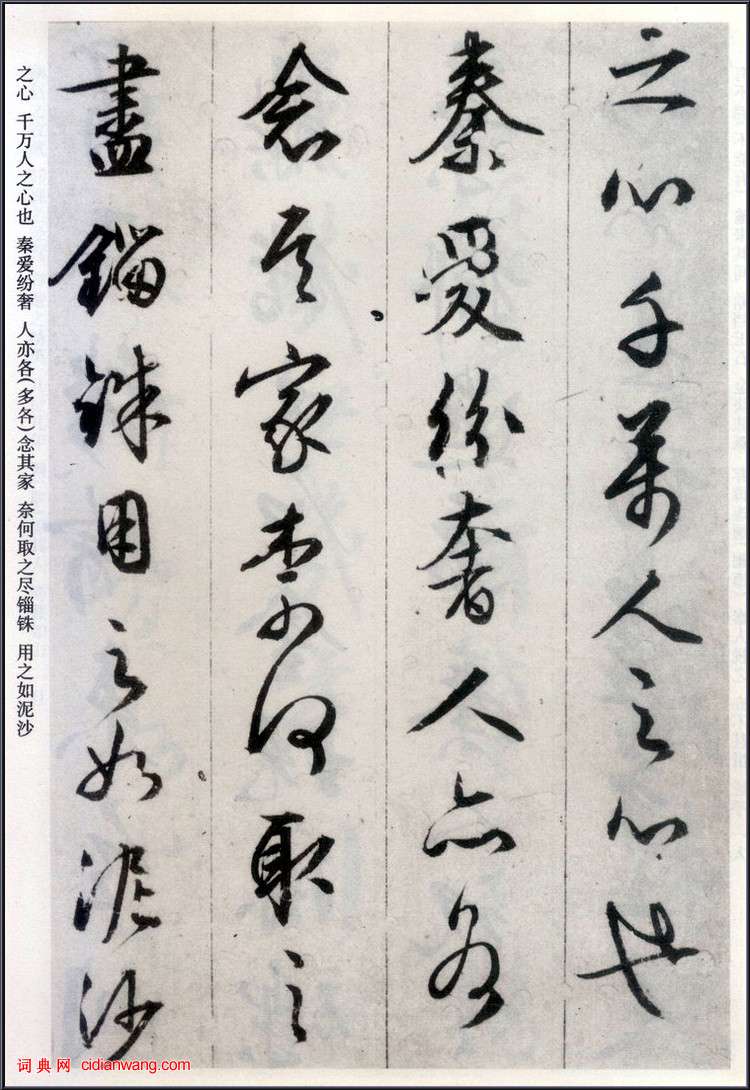 之心千萬人之心也
秦愛紛奢人亦各
念其家柰何取之
盡錙銖用之如泥沙
之心 千万人之心也 秦爱纷奢 人亦各(多各)念其家 奈何取之尽锱铢 用之如泥沙
词典网 cidianwang.com